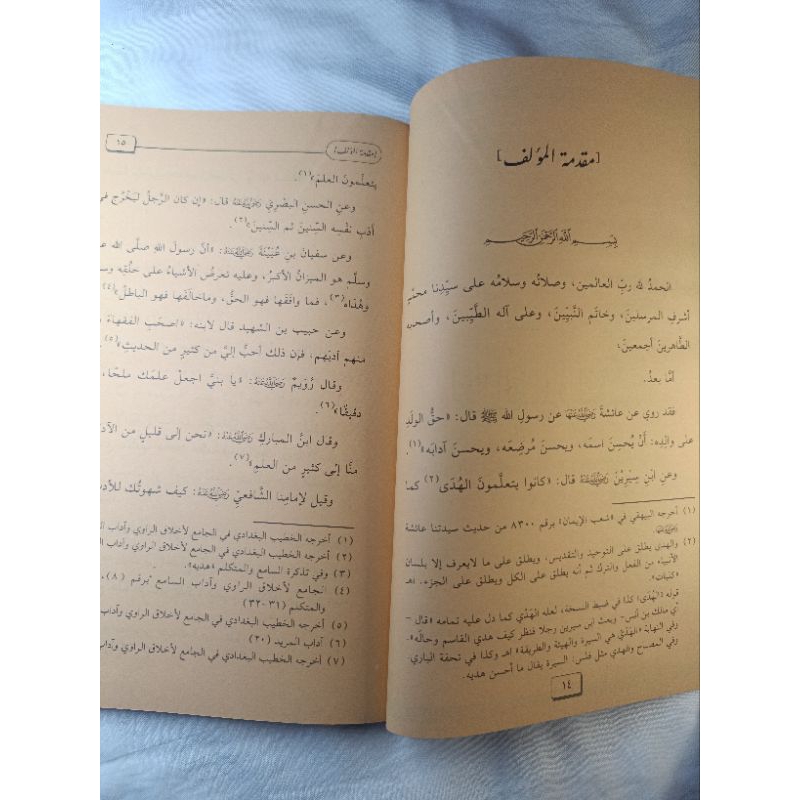 [مقدمة المؤلف]
بِسْمِ اللَّهِ الرَّحْمَنِ الرَّحِيمِ
الحمدُ لله ربِّ العالمين، وصلاتُه وسلامُه على سيِّدِنا محمَّدٍ
أشرفِ المرسلينَ، وخاتَمِ النَّبِيِّينَ، وعلى آله الطَّيِّبينَ، وأصحابِه
الطَّاهرينَ أجمعينَ؛
أمَّا بعدُ.
فقد رويَ عن عائشةَ رَضِيَ اللَّهُ عَنْهَا عن رسولِ الله ﷺ قال: «حقُّ الولَدِ
على والدِه: أَنْ يُحْسِنَ اسمَه، ويحسنَ مُرضِعَه، ويحسنَ آدابَه»(١).
وعنِ ابْنِ سِيْرِيْنَ رَضِيَ اللَّهُ عَنْهُ قال: «كانوا يتعلَّمونَ الهُدَى(٢) كما
(١) أخرجه البيهقي في «شعب الإيمان» برقم ٨٣٠٠ من حديث سيدتنا عائشة
رَضِيَ اللَّهُ عَنْهَا.
(٢) والهدى يطلق على التوحيد والتقديس، ويطلق على ما لايعرف إلا بلسان
الأنبياء من الفعل والترك ثم أنه يطلق على الكل ويطلق على الجزء. اهـ
«كليات».
قوله (الهُدَى) كذا في ضبط النسخة، لعله الهَدْي كما دل عليه تمامه «قال –
أي مالك بن أنس- وبعث ابن سيرين رجلا فنظر كيف هدي القاسم وحاله».
وفي النهاية «الهَدْيُ هي السيرة والهيئة والطريقة» اهـ وكذا في تحفة الباري.
وفي المصباح والهدي مثل فلس: السيرة يقال ما أحسن هديه.
١٤
[مقدمة المؤلف]
١٥
يتعلَّمونَ العلمَ»(١).
وعنِ الحسنِ البصْرِي رَضِيَ اللَّهُ عَنْهُ قال: «إن كان الرَّجلُ ليَخْرُج في
أدَبِ نفْسِه السِّنينَ ثم السِّنينَ»(٢).
وعن سفيانَ بنِ عُيَيْنَةَ رَضِيَ اللَّهُ عَنْهُ: «أنَّ رسولَ اللهِ صلَّى الله
وسلَّم هو الميزانُ الأكبرُ، وعليه تُعرَضُ الأشياءُ على خلُقِه
وهُدَاه(٣)، فما وافقَها فهو الحقُّ، وماخالفَها فهو الباطلُ»(٤)
وعن حبيب بن الشهيد قال لابنه: «اصحَبِ الفقهاءَ
منهم أدبَهم، فإن ذلك أحبُّ إليَّ من كثيرٍ من الحديثِ»(٥).
وقال رُوَيمٌ رَضِيَ اللَّهُ عَنْهُ: «يا بنيَّ اجعلْ علمَك ملحًا،
دقيقًا»(٦).
وقال ابنُ المباركِ رَضِيَ اللَّهُ عَنْهُ: «نحن إلى قليلٍ من
منَّا إلى كثيرٍ من العلمِ»(٧).
وقيل لإمامِنا الشَّافعيِّ رَضِيَ اللَّهُ عَنْهُ: كيف شهوتُك
(١) أخرجه الخطيب البغدادي في الجامع لأخلاق الراوي وآداب
(٢) أخرجه الخطيب البغدادي في الجامع لأخلاق الراوي وآداب
(٣) وفي تذكرة السامع والمتكلم «هديه».
(٤) الجامع لأخلاق الراوي وآداب السامع «برقم (٨).
والمتكلم (٣١-٣٢)
(٥) أخرجه الخطيب البغدادي في الجامع لأخلاق الراوي وآداب
(٦) آداب المريد (٢٠)
(٧) أخرجه الخطيب البغدادي في الجامع لأخلاق الراوي وآداب